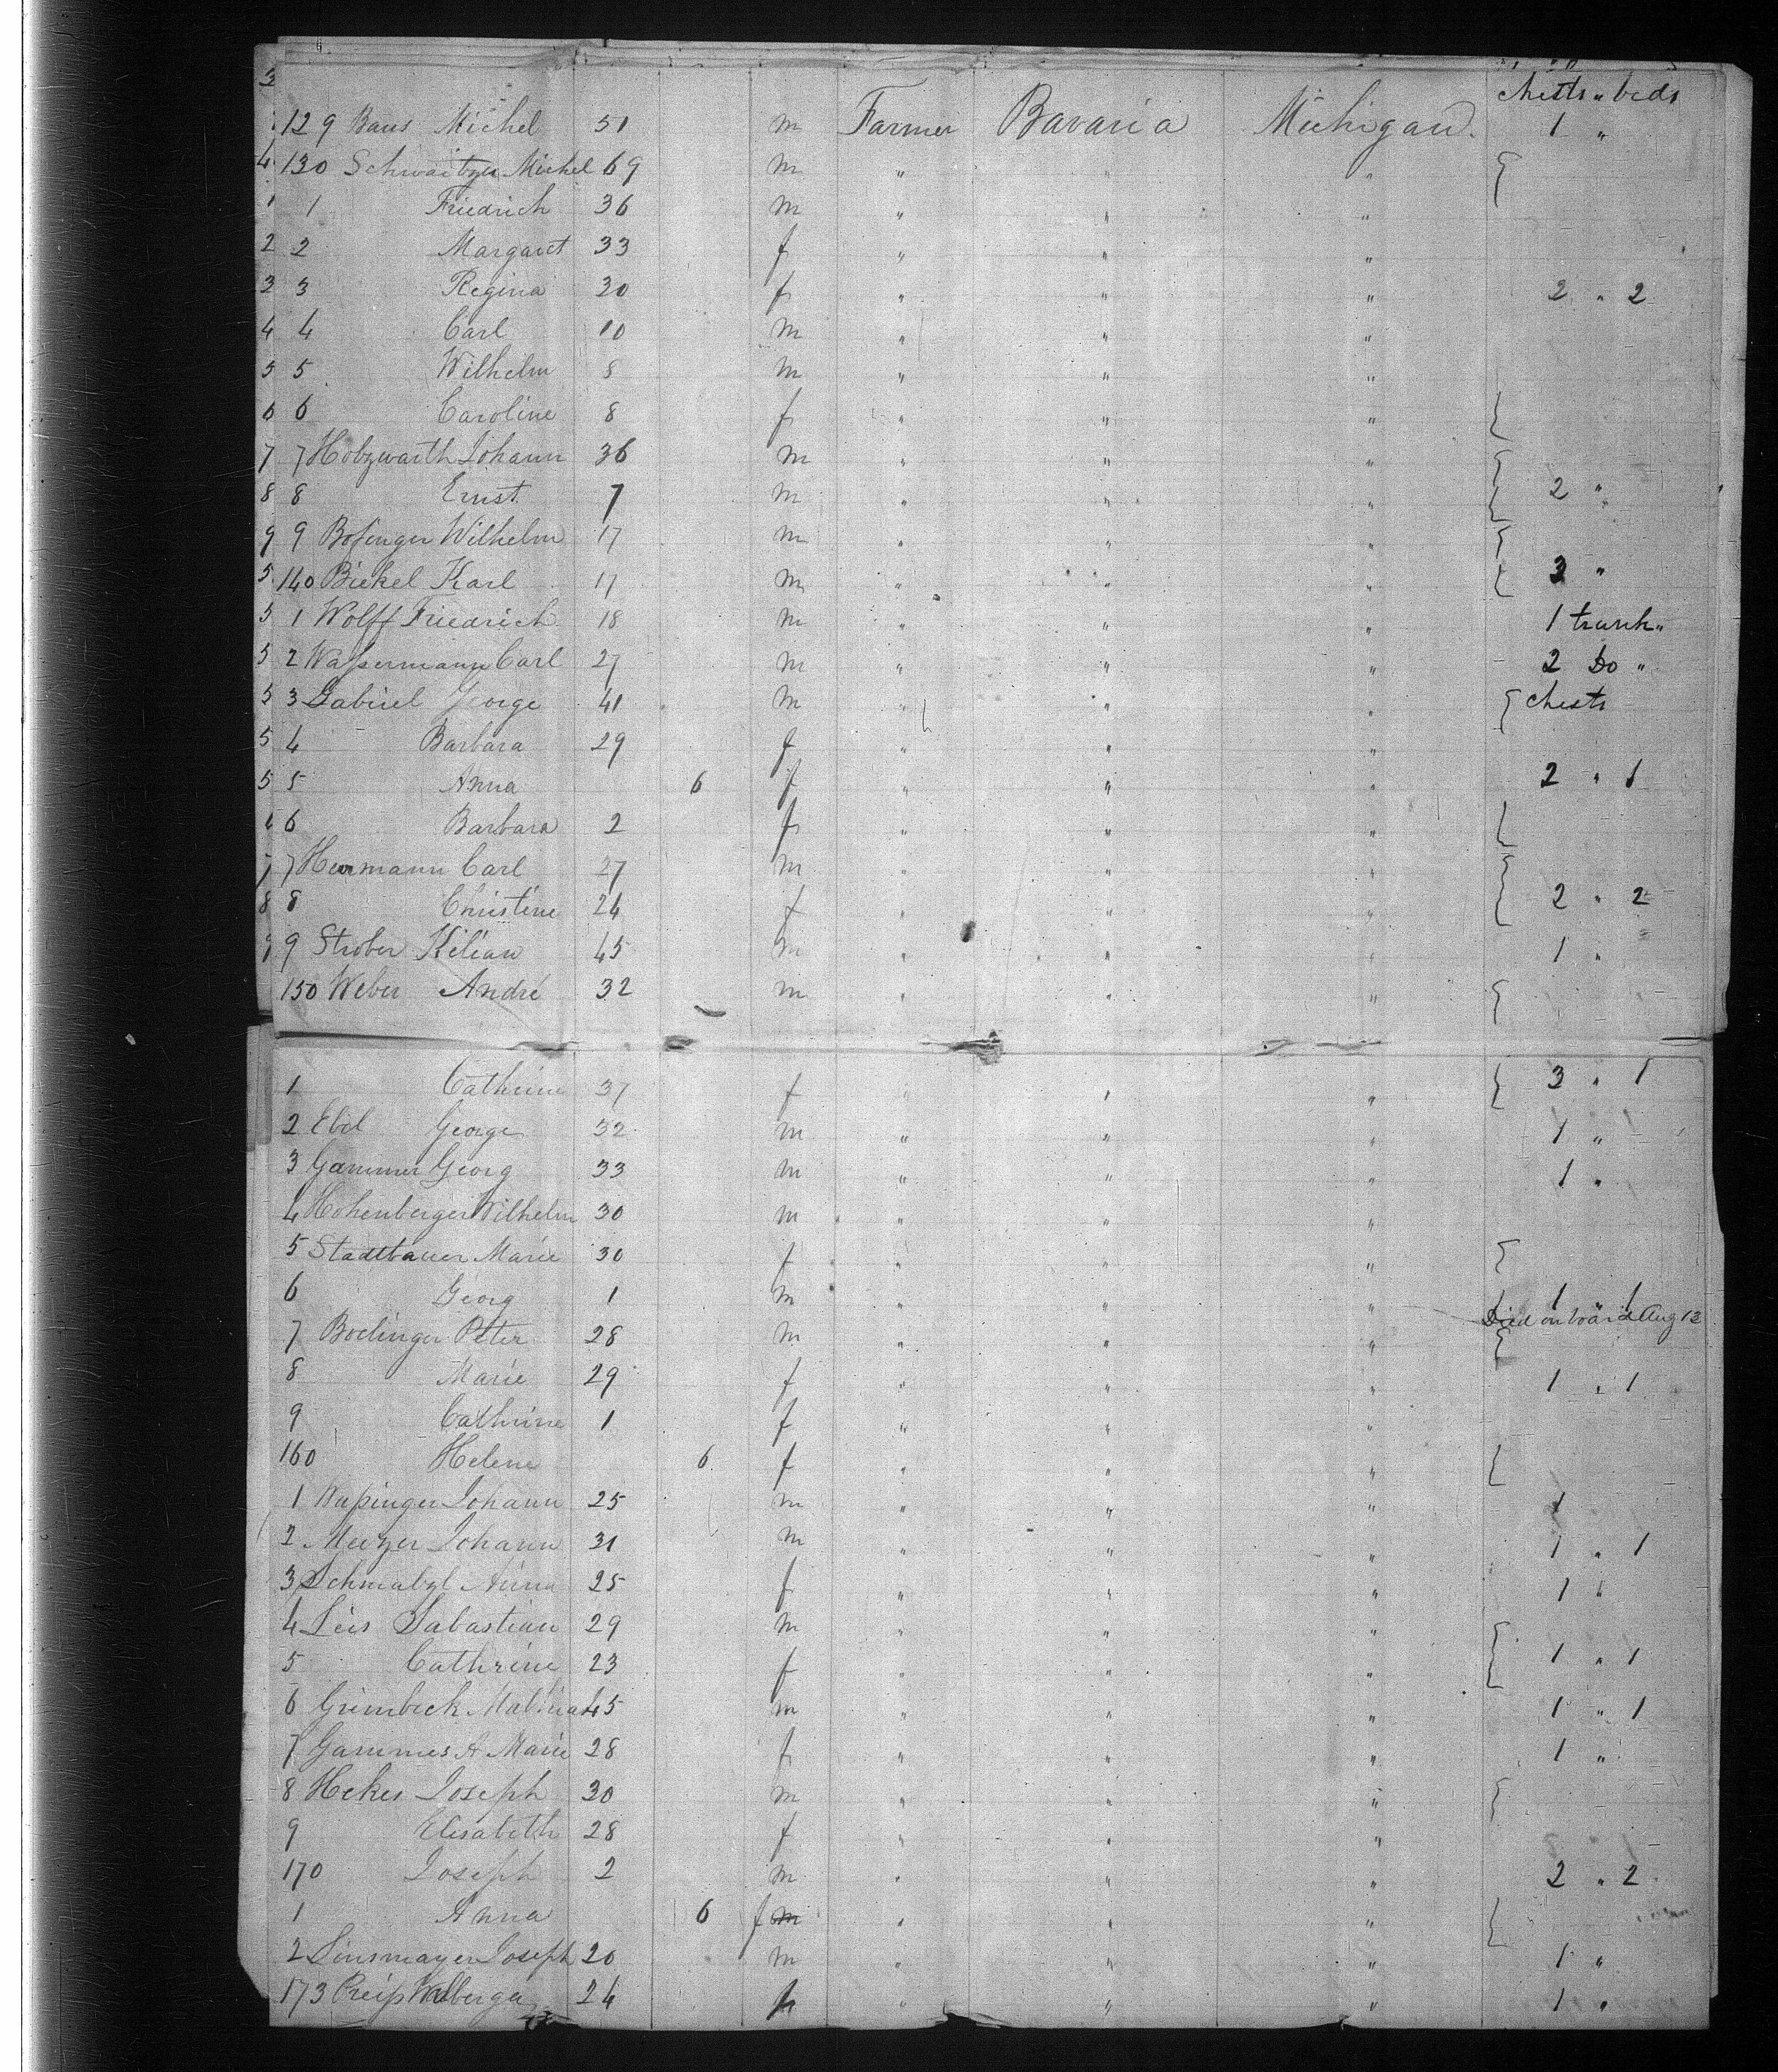 Chests " beds
129 Baus Michel 51 m Farmer Bavaria Michigan. 1 "
130 Schwaitzer Michel 69 m " " "
1 Friedrich 36 m " " "
2 Margaret 33 f " " "
3 Regina 30 f " " " 2 " 2
4 Carl 10 m " " "
5 Wilhelm 8 m " " "
6 Caroline 8 f " " "
7 Holzwarth Johann 36 m " " "
8 Ernst 7 m " " " 2 "
9 Bofinger Wilhelm 17 m " " "
140 Bickel Karl 17 m " " " 3 "
1 Wolff Friedrich 18 m " " " 1 trunk "
2 Wassermann Carl 27 m " " " 2 Do "
3 Gabriel George 41 m " " " Chests
4 Barbara 29 f " " "
5 Anna 6 f " " " 2 " 1
6 Barbara 2 f " " "
7 Hermann Carl 27 m " " "
8 Christine 24 f " " " 2 " 2
9 Strober Kilian 45 m " " " 1 "
150 Weber André 32 m " " "
1 Cathrine 37 f " " " 3 " 1
2 Ebel George 32 m " " " 1 "
3 Gammer Georg 33 m " " " 1 "
4 Hohenberger Wilhelm 30 m " " "
5 Stadtbauer Marie 30 f " " "
6 Georg 1 m " " " 1 " 1
Died on board Aug 13
7 Bodinger Peter 28 m " " "
8 Marie 29 f " " " 1 " 1
9 Cathrine 1 f " " "
160 Helene 6 f " " "
1 Johann 25 m " " " 1
2 Johann 31 m " " " 1 " 1
3 Schmalzl Anna 25 f " " " 1 "
4 Leis Sabastian 29 m " " "
5 Cathrine 23 f " " " 1 " 1
6 Grimbeck 45 m " " " 1 " 1
7 Gammes A Marie 28 f " " " 1 "
8 Hekes Joseph 30 m " " "
9 Elisabeth 28 f " " "
170 Joseph 2 m " " " 2 " 2
1 Anna 6 f m " " "
2 Linsmayer Joseph 20 m " " " 1 "
173 Preiss Walberga 24 f " " " 1 "